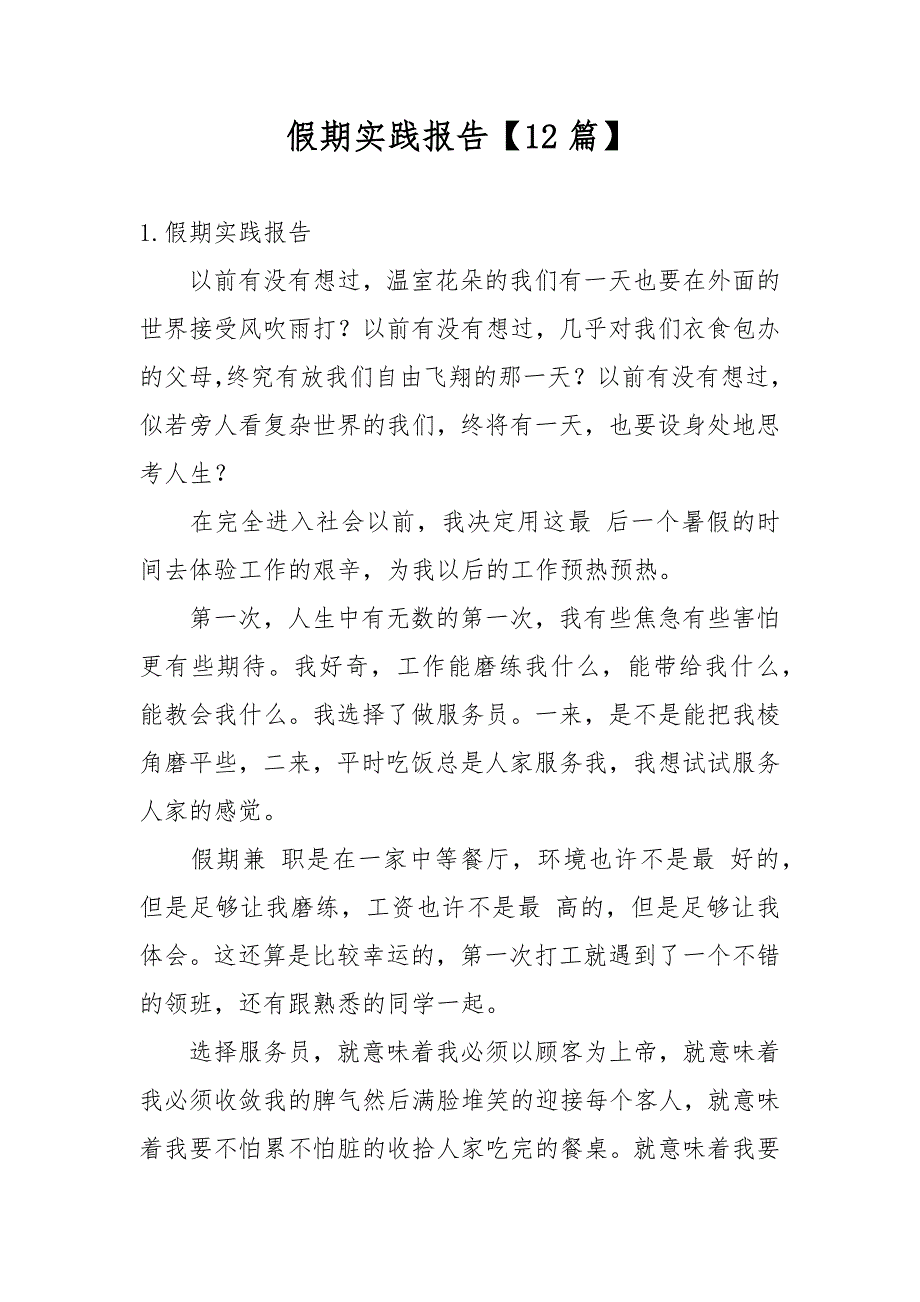 假期实践报告【12 篇】
1.假期实践报告
以前有没有想过，温室花朵的我们有一天也要在外面的
世界接受风吹雨打？以前有没有想过，几乎对我们衣食包办
的父母，终究有放我们自由飞翔的那一天？以前有没有想过，
似若旁人看复杂世界的我们，终将有一天，也要设身处地思
考人生？
在完全进入社会以前，我决定用这最 后一个暑假的时
间去体验工作的艰辛，为我以后的工作预热预热。
第一次，人生中有无数的第一次，我有些焦急有些害怕
更有些期待。我好奇，工作能磨练我什么，能带给我什么，
能教会我什么。我选择了做服务员。一来，是不是能把我棱
角磨平些，二来，平时吃饭总是人家服务我，我想试试服务
人家的感觉。
假期兼 职是在一家中等餐厅，环境也许不是最 好的，
但是足够让我磨练，工资也许不是最 高的，但是足够让我
体会。这还算是比较幸运的，第一次打工就遇到了一个不错
的领班，还有跟熟悉的同学一起。
选择服务员，就意味着我必须以顾客为上帝，就意味着
我必须收敛我的脾气然后满脸堆笑的迎接每个客人，就意味
着我要不怕累不怕脏的收拾人家吃完的餐桌。就意味着我要